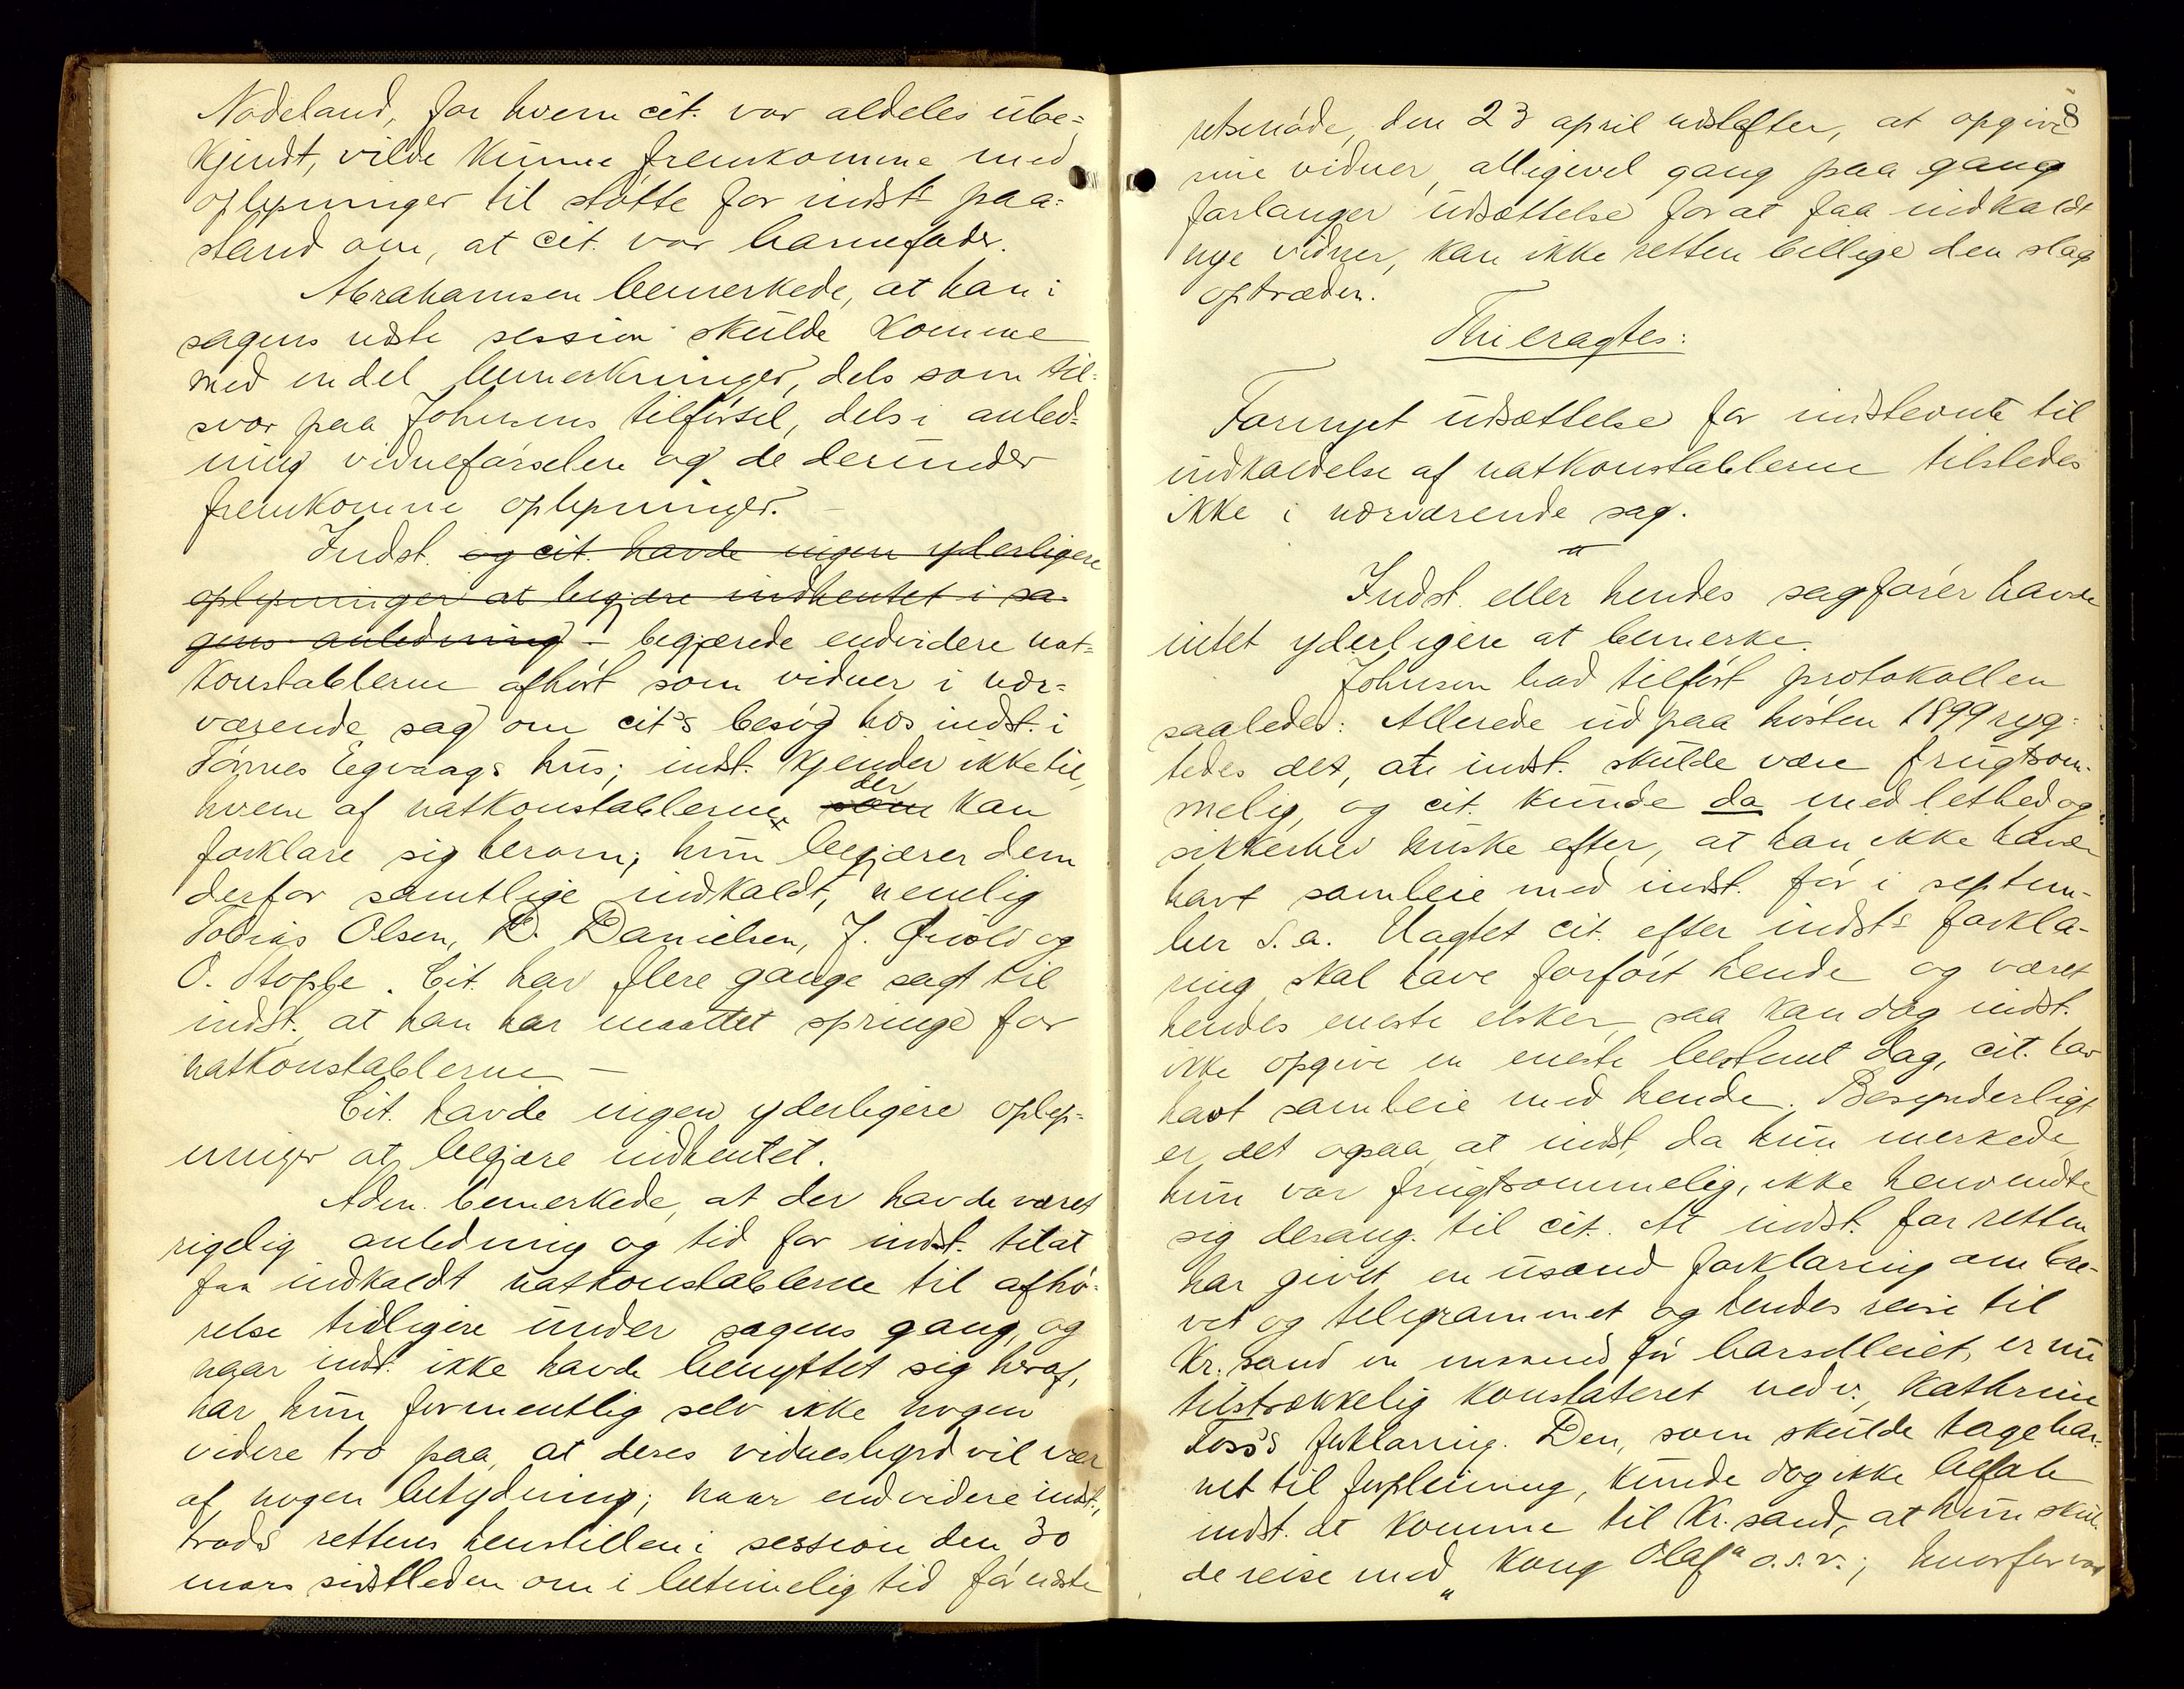 Nodeland, for hvem cit. var aldeles ube=
kjendt, vilde kunne fremkomme med
oplysninger til støtte for indst.s paa=
stand om, at cit. var barnefader.
Abrahamsen bemerkede, at han i
sagens næste session skulde komme
med endel bemerkninger, dels som til=
svar paa Johnsens tilførsel, dels i anled=
ning vidneførselen og de derunder
fremkomne oplysninger. –
Indst. og cit. havde ingen yderligere
oplysninger at begjære indhentet i sa-
gens anledning – begjærede endvidere nat=
konstablerne afhørt som vidner i nær=
værende sag om cit's besøg hos indst. i
Tønnes Egvaags hus; indst. kjender ikke til,
hvem af natkonstablerne, som der kan
forklare sig herom; hun begjærer dem
derfor samtlige indkaldt, nemlig
Tobias Olsen, D. Danielsen, J. Qvold og
O. Stople. Cit. har flere gange sagt til
indst., at han har maattet springe for
natkonstablerne –
Cit. havde ingen yderligere oplys=
ninger at begjære indhentet.
Adm. bemerkede, at der havde været
rigelig anledning og tid for indst. til at
faa indkaldt natkonstablerne til afhø=
relse tidligere under sagens gang, og
naar indst. ikke havde benyttet sig heraf,
har hun formentlig selv ikke nogen
videre tro paa, at deres vidnesbyrd vil være
af nogen betydning; naar endvidere indst.,
trods rettens henstillen i session den 30
mars sidstleden om i betimelig tid før næste
8
retsmøde, den 23 april næstefter, at opgive
sine vidner, alligevel gang paa gang
forlanger udsættelse for at faa indkaldt
nye vidner, kan ikke retten billige den slags
optræden.
Thi eragtes:
Fornyet udsættelse for indstevnte til
indkaldelse af natkonstablerne tilstedes
ikke i nærværende sag.
"
Indst. eller hendes sagfører havde
intet yderligere at bemerke.
Johnsen bad tilført protokollen
saaledes: Allerede ud paa høsten 1899 ryg=
tedes det, at indst. skulde være frugtsom-
melig, og cit. kunde da med lethed og
sikkerhed huske efter, at han ikke havde
havt samleie med indst. før i septem-
ber s.a. Uagtet cit. efter indst.s forkla-
ring skal have forført hende og været
hendes eneste elsker, saa kan dog indst.
ikke opgive en eneste bestemt dag, cit. har
havt samleie med hende. Besynderligt
er det ogsaa, at indst., da hun merkede
hun var frugtsommelig, ikke henvendte
sig desang. til cit. At indst. for retten
har givet en usand forklaring om bre-
vet og telegrammet og hendes reise til
Kr.sand en maaned før barselleiet, er nu
tilstrækkelig konstateret ved v. Kathrine
Foss's forklaring. Den, som skulde tage bar-
net til forpleining, kunde dog ikke befale
indst. at komme til Kr.sand, at hun skul-
de reise med „Kong Olaf" o.s.v.; hvorfor var